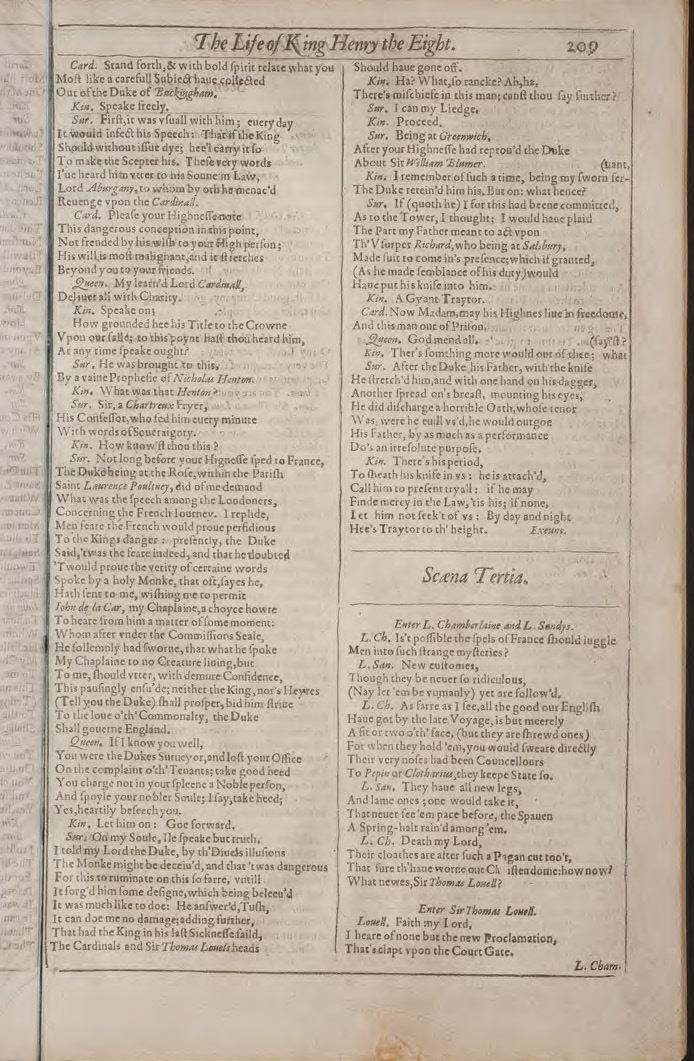 The Life of King Henry the Eight. 209
Card. Stand forth, & with bold ſpirit relate what you
Moſt like a carefull Subiect haue collected
Out of the Duke of Buckingham.
Kin. Speake freely.
Sur. Firſt, it was vſuall with him; euery day
It would infect his Speech: That if the King
Should without iſſue dye; hee'l carry it ſo
To make the Scepter his. Theſe very words
I'ue heard him vtter to his Sonne in Law,
Lord Aburgany, to whom by oth he menac'd
Reuenge vpon the Cardinall.
Card. Pleaſe your Highneſſe note
This dangerous conception in this point,
Not frended by his wiſh to your High perſon;
His will is moſt malignant, and it ſtretches
Beyond you to your friends.
Queen. My learn'd Lord Cardinall,
Deliuer all with Charity.
Kin. Speake on;
How grounded hee his Title to the Crowne
Vpon our faile; to this poynt haſt thou heard him,
At any time ſpeake ought?
Sur. He was brought to this,
By a vaine Propheſie of Nicholas Henton.
Kin. What was that Henton?
Sur. Sir, a Chartreux Fryer,
His Confeſſor, who fed him euery minute
With words of Soueraignty.
Kin. How know'ſt thou this?
Sur. Not long before your Higneſſe ſped to France,
The Duke being at the Roſe, within the Pariſh
Saint Laurence Poultney, did of me demand
What was the ſpeech among the Londoners,
Concerning the French Iourney. I replide,
Men feare the French would proue perfidious
To the Kings danger: preſently, the Duke
Said, 'twas the feare indeed, and that he doubted
'Twould proue the verity of certaine words
Spoke by a holy Monke, that oft, ſayes he,
Hath ſent to me, wiſhing me to permit
Iohn de la Car, my Chaplaine, a choyce howre
To heare from him a matter of ſome moment:
Whom after vnder the Commiſſions Seale,
He ſollemnly had ſworne, that what he ſpoke
My Chaplaine to no Creature liuing, but
To me, ſhould vtter, with demure Confidence,
This pauſingly enſu'de; neither the King, nor's Heyres
(Tell you the Duke) ſhall proſper, bid him ſtriue
To the loue o'th' Commonalty, the Duke
Shall gouerne England.
Queen. If I know you well,
You were the Dukes Surueyor, and loſt your Office
On the complaint o'th' Tenants; take good heed
You charge not in your ſpleene a Noble perſon,
And ſpoyle your nobler Soule; I ſay, take heed;
Yes, heartily beſeech you.
Kin. Let him on: Goe forward.
Sur. On my Soule, Ile ſpeake but truth.
I told my Lord the Duke, by th'Diuels illuſions
The Monke might be deceiu'd, and that 'twas dangerous
For this to ruminate on this ſo farre, vntill
It forg'd him ſome deſigne, which being beleeu'd
It was much like to doe: He anſwer'd, Tuſh,
It can doe me no damage; adding further,
That had the King in his laſt Sickneſſe faild,
The Cardinals and Sir Thomas Louels heads
Should haue gone off.
Kin. Ha? What, ſo rancke? Ah, ha,
There's miſchiefe in this man; canſt thou ſay further?
Sur. I can my Liedge.
Kin. Proceed.
Sur. Being at Greenwich,
After your Highneſſe had reprou'd the Duke
About Sir William Blumer.
(uant,
Kin. I remember of ſuch a time, being my ſworn ſer-
The Duke retein'd him his. But on: what hence?
Sur. If (quoth he) I for this had beene committed,
As to the Tower, I thought; I would haue plaid
The Part my Father meant to act vpon
Th'Vſurper Richard, who being at Salsbury,
Made ſuit to come in's preſence; which if granted,
(As he made ſemblance of his duty) would
Haue put his knife into him.
Kin. A Gyant Traytor.
Card. Now Madam, may his Highnes liue in freedome,
And this man out of Priſon.
Queen. God mend all.
(ſay'ſt?
Kin. Ther's ſomthing more would out of thee; what
Sur. After the Duke his Father, with the knife
He ſtretch'd him, and with one hand on his dagger,
Another ſpread on's breaſt, mounting his eyes,
He did diſcharge a horrible Oath, whoſe tenor
Was, were he euill vs'd, he would outgoe
His Father, by as much as a performance
Do's an irreſolute purpoſe.
Kin. There's his period,
To ſheath his knife in vs: he is attach'd,
Call him to preſent tryall: if he may
Finde mercy in the Law, 'tis his; if none,
Let him not ſeek't of vs: By day and night
Hee's Traytor to th' height. Exeunt.
Scæna Tertia.
Enter L. Chamberlaine and L. Sandys.
L. Ch. Is't poſſible the ſpels of France ſhould iuggle
Men into ſuch ſtrange myſteries?
L. San. New cuſtomes,
Though they be neuer ſo ridiculous,
(Nay let 'em be vnmanly) yet are follow'd.
L. Ch. As farre as I ſee, all the good our Engliſh
Haue got by the late Voyage, is but meerely
A fit or two o'th' face, (but they are ſhrewd ones)
For when they hold 'em, you would ſweare directly
Their very noſes had been Councellours
To Pepin or Clotharius, they keepe State ſo.
L. San. They haue all new legs,
And lame ones; one would take it,
That neuer ſee 'em pace before, the Spauen
A Spring-halt rain'd among 'em.
L. Ch. Death my Lord,
Their cloathes are after ſuch a Pagan cut too't,
That ſure th'haue worne out Ch iſtendome: how now?
What newes, Sir Thomas Louell?
Enter Sir Thomas Louell.
Louell. Faith my Lord,
I heare of none but the new Proclamation,
That's clapt vpon the Court Gate.
L. Cham.